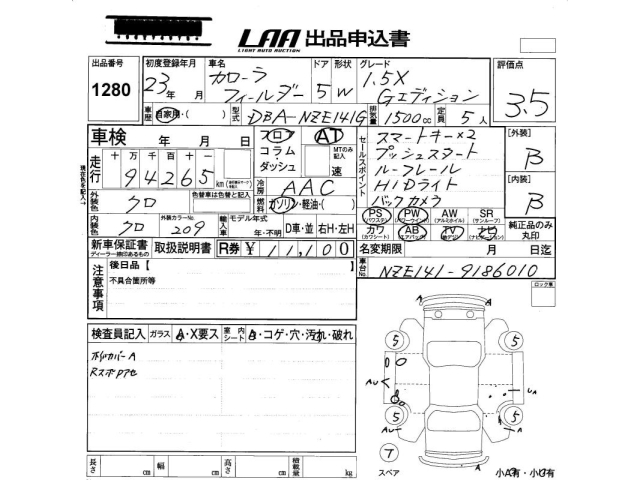 LAA 出品申込書
LIGHT AUTO AUCTION
出品番号 1280
初度登録年月 23年 月
車名 カローラ フィールダー
ドア 5 形状 W
グレード 1.5X Gエディション
評価点 3.5
車歴 自家用・( )
型式 DBA-NZE141G
排気量 1500cc 定員 5人
車検 年 月 日
フロア AT
コラム・ダッシュ
MTのみ記入 速
セールスポイント
スマートキー×2
プッシュスタート
ルーフレール
HIDライト
バックカメラ
[外装] B
[内装] B
現在色を記入
走行 十万千百十一
94265 km
冷房 AAC
外装色 クロ
色替車は色替と記入
燃料 ガソリン・軽油・( )
PS (パワステ) PW (パワーウインド) AW (アルミホイル) SR (サンルーフ)
カワ (カワシート) AB (エアバック) TV (地デジ) ナビ (ナビゲーション)
純正品のみ丸印
内装色 クロ
外装カラーNo. 209
輸入車 モデル年式 年・不明
D車・並 右H・左H
新車保証書 ディーラー捺印あるもの
取扱説明書
R券 ¥11,100
名変期限 月 日迄
車台No. NZE141-9186010
ロック車
注意事項
後日品【
不具合箇所等
検査員記入
ガラス A・X要ス
室内シート B・コゲ・穴・汚れ・破れ
5 5
AU UA
5 5
AU UA
7
スペア
長さ cm 幅 cm 高さ cm 積載量 kg
小A有・小U有